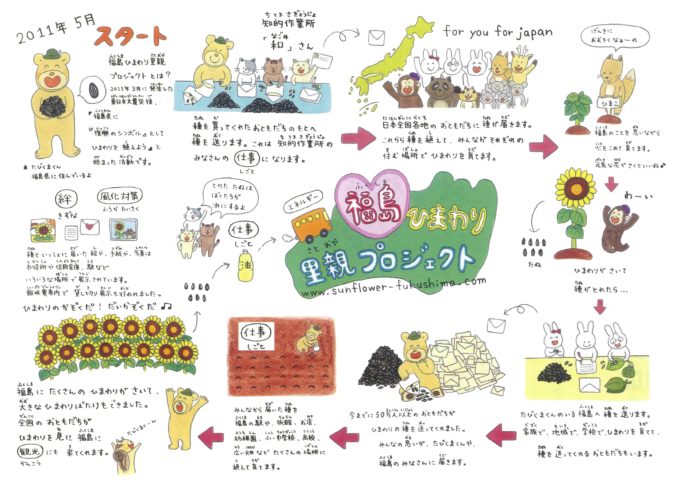 2011年 5月
スタート
福島ひまわり里親
プロジェクト とは？
2011年 3月に 発生した
東日本大震災後、
福島県に
『復興のシンボル』として
ひまわりを 植えようと
始まった 活動です。
▲たびくまくん
福島県に 住んでいるよ
知的作業所
「和」さん
種を 買ってくれた おともだちの もとへ
種を 送ります。これは 知的作業所の
みなさんの 仕事 に なります。
しごと
for you for japan
日本全国各地の おともだちに 種が 届きます。
これらの 種を 植えて、みんなが それぞれの
住む 場所で ひまわりを 育てます。
げんきに
おおきくなぁーれ
ひまこ
福島のことを 思いながら
心をこめて 育てます。
元気な花が さくといいね
わーい
たね
ひまわりが さいて
種がとれたら…
絆
きずな
風化対策
ふうかたいさく
種といっしょに 届いた 絵や、手紙や、写真は
市役所や 信用金庫、駅など
いろいろな 場所で 展示されています。
飯坂電車内で 貸し切り 展示も 行われました。
ひまわりの かぞくだ！だいかぞくだ
とれた たねは
ぼくたちが
油にするよ
仕事
しごと
油
エネルギー
福島
ふくしま
ひまわり
さと おや
里親 プロジェクト
www.sunflower-fukushima.com
福島に たくさんの ひまわりが さいて、
大きな ひまわりばたけも できました。
全国の おともだちが
ひまわりを 見に 福島に
観光 にも 来てくれます。
かんこう
たびくまくーん
仕事
しごと
みんなから 届いた 種を
福島の 駅や、旅館、お店、
幼稚園、小・中学校、高校、
広い 畑など たくさんの 場所に
植えて 育てます。
今までに 50万人以上の おともだちが
ひまわりの 種を 送ってくれました。
みんなの 思いが、たびくまくんや、
福島の みなさんに 届きます。
たびくまくんのいる 福島へ 種を 送ります。
家族で、地域で、学校で、ひまわりを 育て、
種を 送ってくれる おともだちもいます。